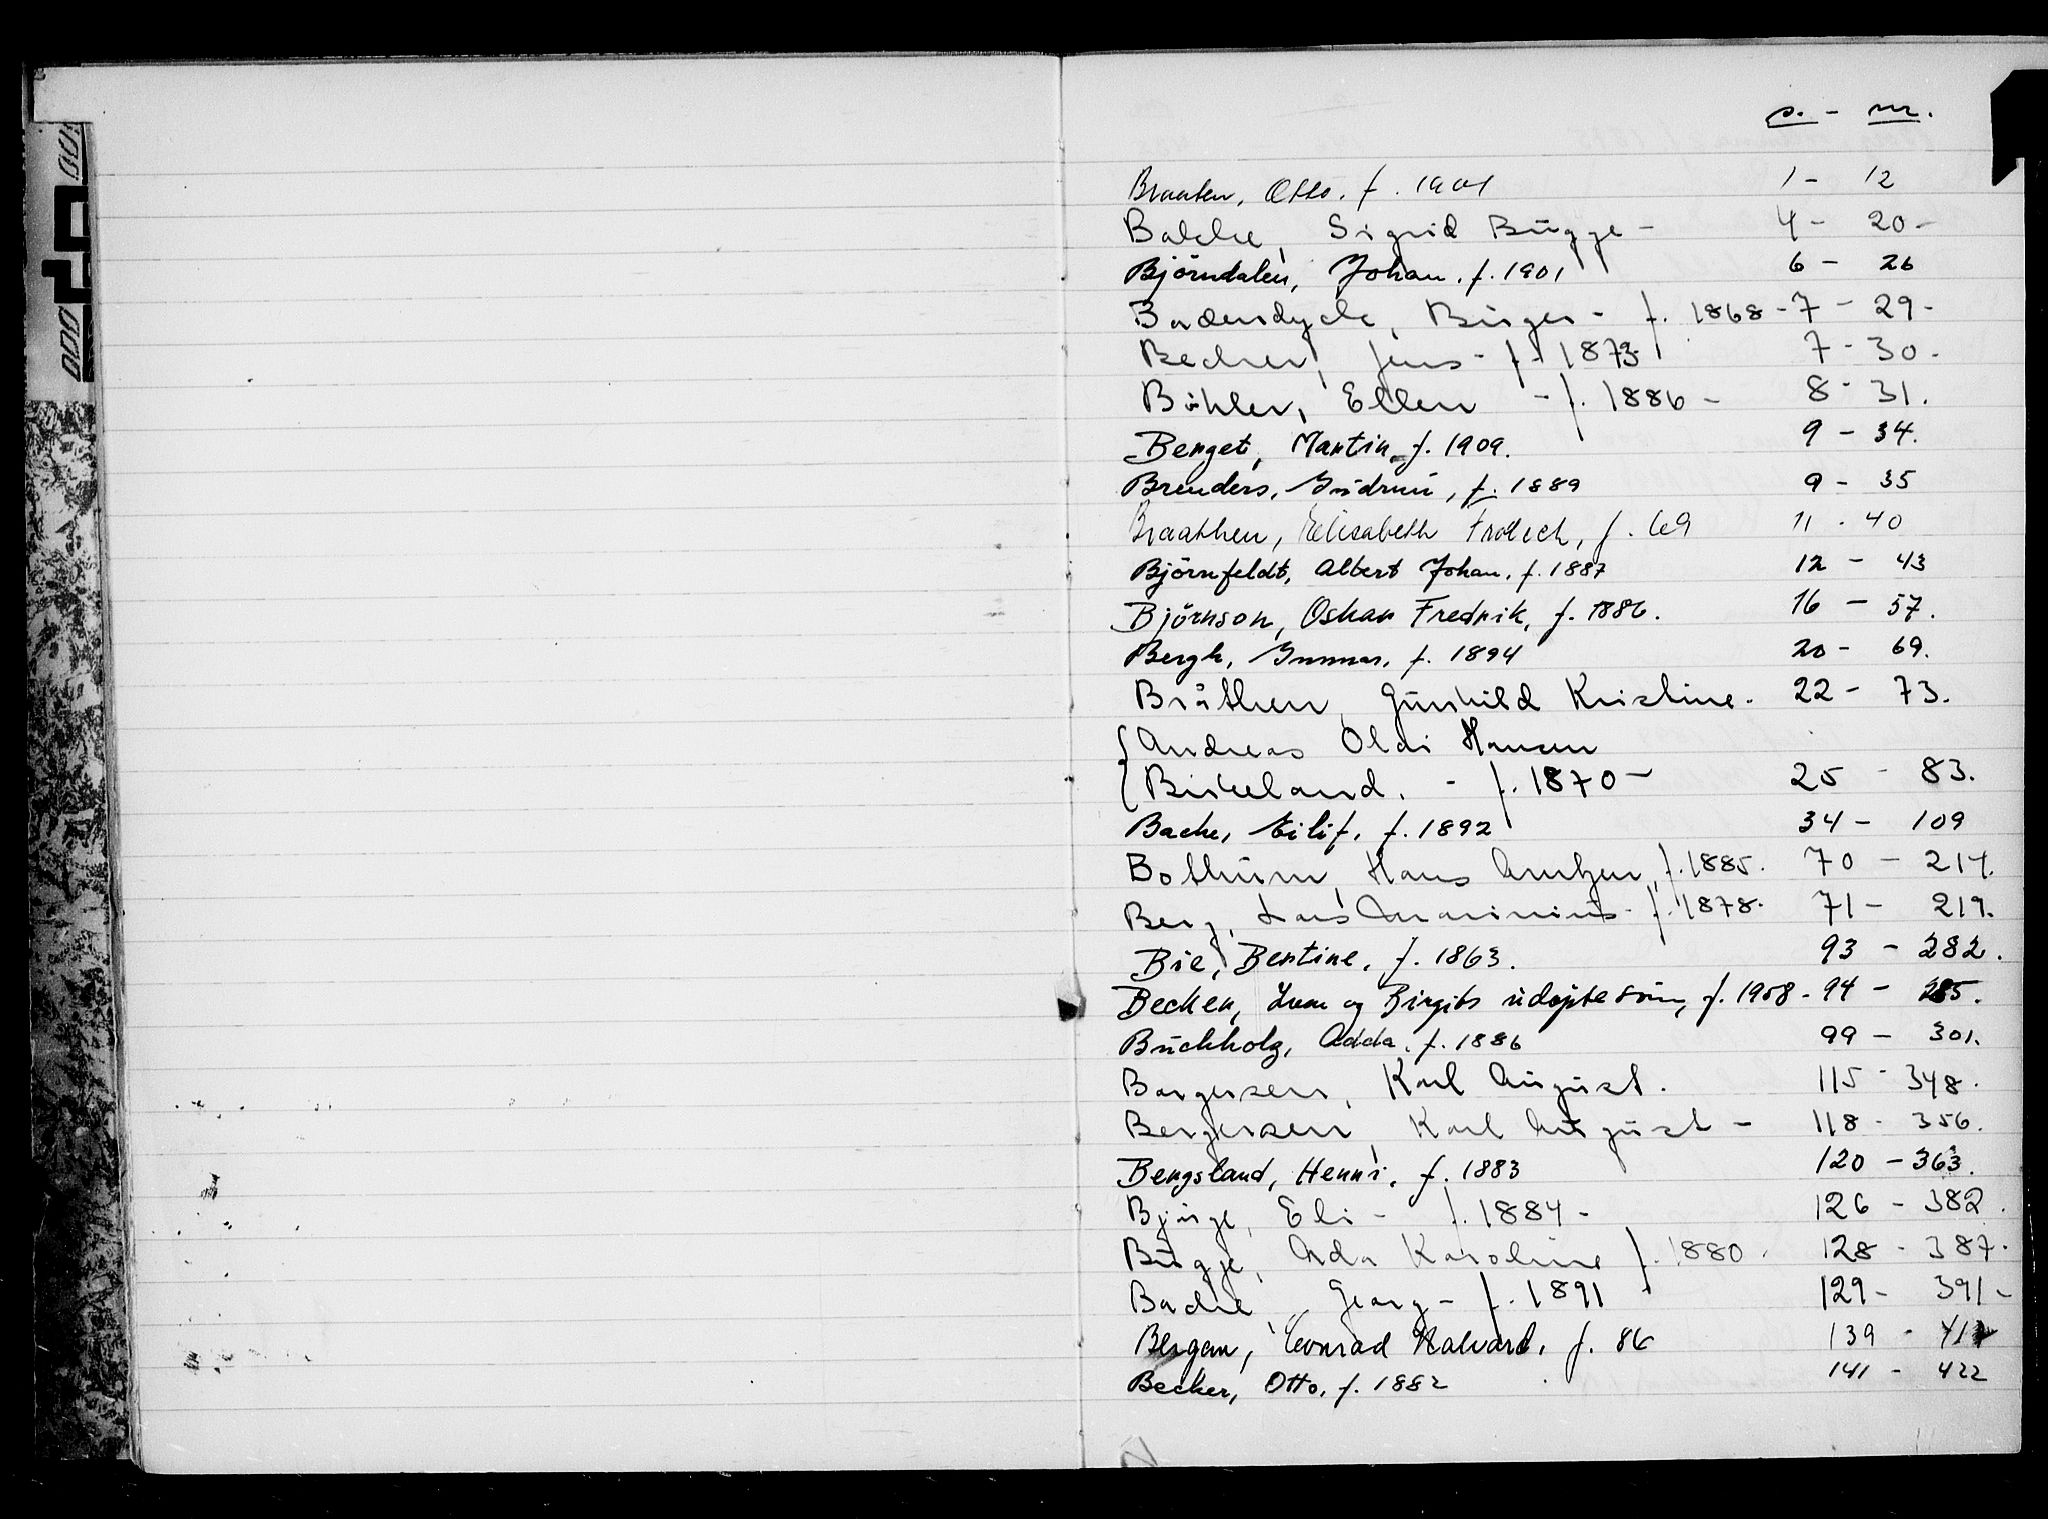 s. - nr.
Braaten, Otto. f. 1901 1 - 12
Balche, Sigrid Bugge - 4 - 20 -
Björndalen, Johan. f. 1901 6 - 26
Badendyck, Birger - f. 1868 - 7 - 29 -
Becher, Jens - f. 1873 7 - 30 -
Böhler, Ellen - f. 1886 - 8 - 31.
Berget, Martin, f. 1909. 9 - 34.
Brenders, Gudrun, f. 1889 9 - 35
Braathen, Elisabeth Frölich, f. 69 11 - 40
Björnfeldt, Albert Johan. f. 1887 12 - 43
Björnson, Oskar Fredrik, f. 1886. 16 - 57.
Bergh, Gunnar, f. 1894 20 - 69.
Bråthen, Gunhild Kristine. 22 - 73.
Andreas Olai Hansen
Birkeland. - f. 1870 - 25 - 83.
Bache, Eilif, f. 1892 34 - 109
Bothum, Hans Arntzen, f. 1885. 70 - 217.
Berg, Lars Marinius - f. 1878. 71 - 219.
Bie, Bertine, f. 1863. 93 - 282.
Becken, og Birgits udøpte søn, f. 1908 - 94 - 285.
Buchholz, Adda. f. 1886 99 - 301.
Borgersen, Karl August. 115 - 348.
Bergersen, Karl August - 118 - 356.
Bergsland, Henri, f. 1883 120 - 363.
Bjürge, Eli - f. 1884 - 126 - 382.
Bugge, Ada Karoline f. 1880. 128 - 387.
Bache, Georg - f. 1891 129 - 391 -
Bergan, Conrad Halvard, f. 86 139 -
Becker, Otto, f. 1882 141 - 422